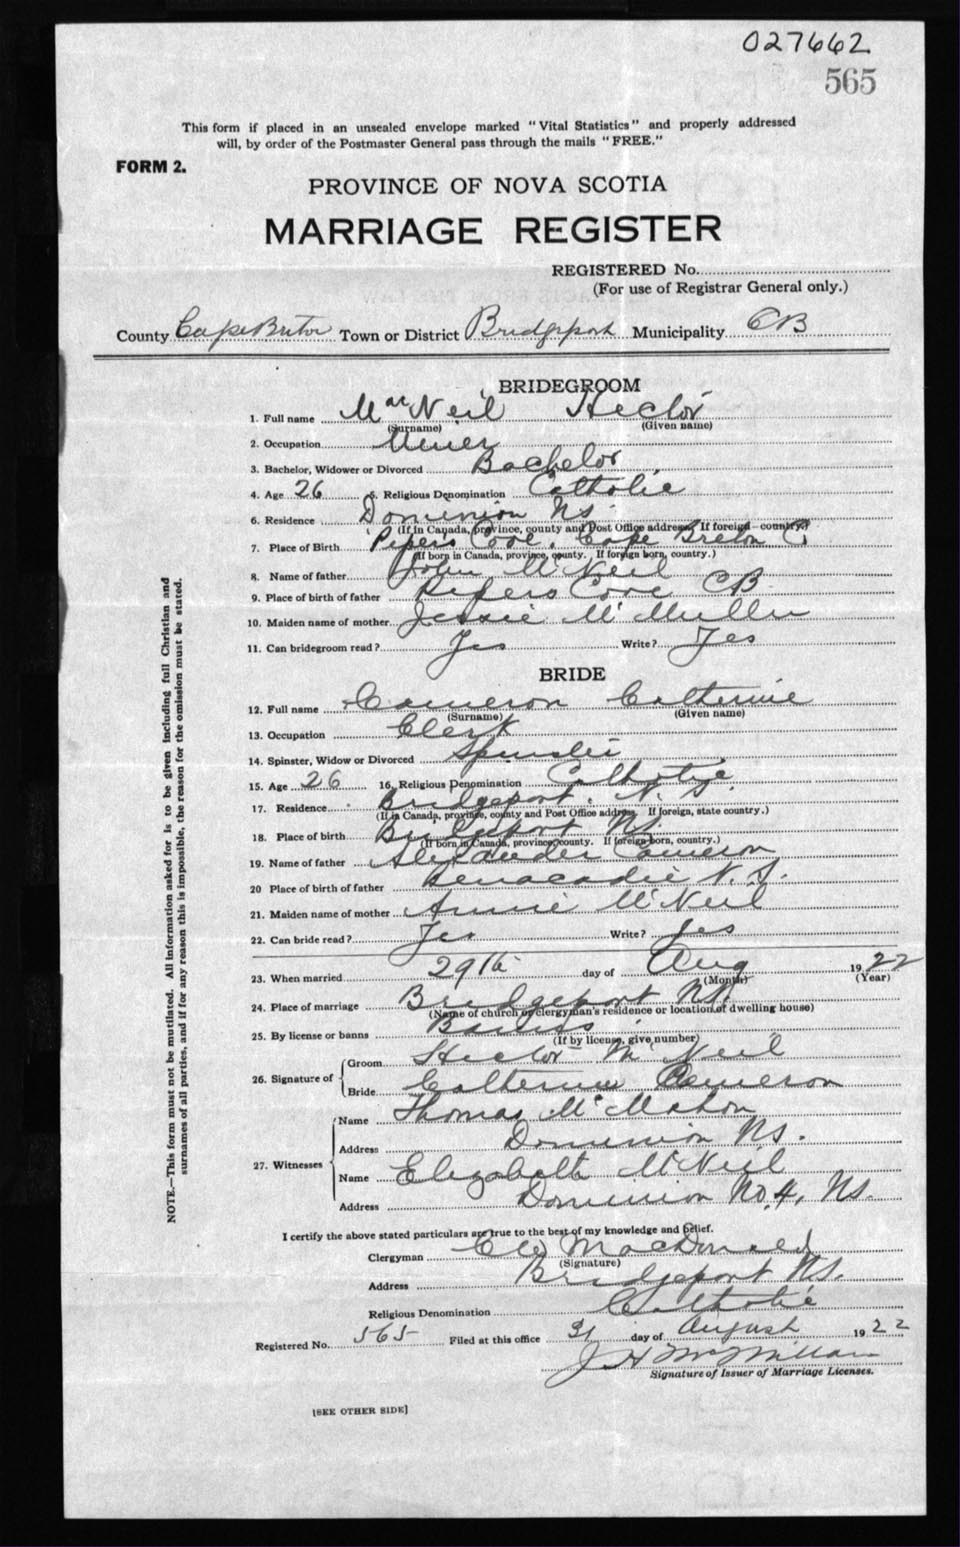 027662
565
This form if placed in an unsealed envelope marked "Vital Statistics" and properly addressed
will, by order of the Postmaster General pass through the mails "FREE."
FORM 2.
PROVINCE OF NOVA SCOTIA
MARRIAGE REGISTER
REGISTERED No.
(For use of Registrar General only.)
County Cape Breton Town or District Bridgeport Municipality CB
BRIDEGROOM
1. Full name MacNeil Hector
(Surname) (Given name)
2. Occupation Miner
3. Bachelor, Widower or Divorced Bachelor
4. Age 26 5. Religious Denomination Catholic
6. Residence Dominion NS.
(If in Canada, province, county and Post Office address, If foreign country)
7. Place of Birth Pipers Cove, Cape Breton C
(If born in Canada, province, county. If foreign born, country.)
8. Name of father John McNeil
9. Place of birth of father Pipers Cove CB
10. Maiden name of mother Jessie McMullin
11. Can bridegroom read? Yes Write? Yes
BRIDE
12. Full name Cameron Catherine
(Surname) (Given name)
13. Occupation Clerk
14. Spinster, Widow or Divorced Spinster
15. Age 26 16. Religious Denomination Catholic
17. Residence Bridgeport. N.S.
(If in Canada, province, county and Post Office address, If foreign, state country.)
18. Place of birth Bridgeport NS.
(If born in Canada, province, county. If foreign born, country.)
19. Name of father Alexander Cameron
20 Place of birth of father Benacadie N.S.
21. Maiden name of mother Annie McNeil
22. Can bride read? Yes Write? Yes
23. When married 29th day of Aug 1922
(Month) (Year)
24. Place of marriage Bridgeport NS.
(Name of church or clergyman's residence or location of dwelling house)
25. By license or banns Banns
(If by license, give number)
26. Signature of Groom Hector McNeil
Bride Catherine Cameron
27. Witnesses Name Thomas McMahon
Address Dominion NS.
Name Elizabeth McNeil
Address Dominion No. 4, NS.
I certify the above stated particulars are true to the best of my knowledge and belief.
Clergyman MacDonald
(Signature)
Address Bridgeport NS.
Religious Denomination Catholic
Registered No. 565 Filed at this office 31 day of August 1922
J H McMillan
Signature of Issuer of Marriage Licenses.
[SEE OTHER SIDE]
NOTE.—This form must not be mutilated. All information asked for is to be given including full Christian and
surnames of all parties, and if for any reason this is impossible, the reason for the omission must be stated.